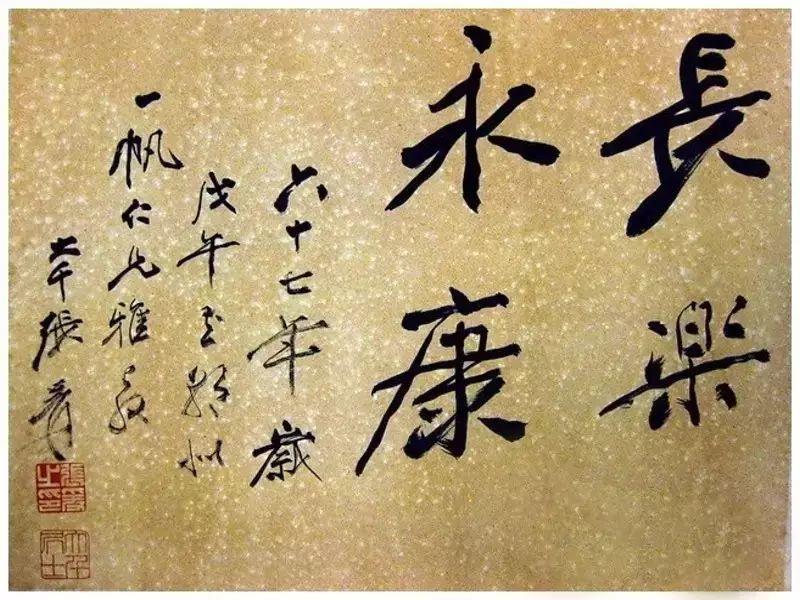 長樂
永康
六十七年歲
戊午似
一帆仁兄雅教
大千張爰
張爰之印
大千居士